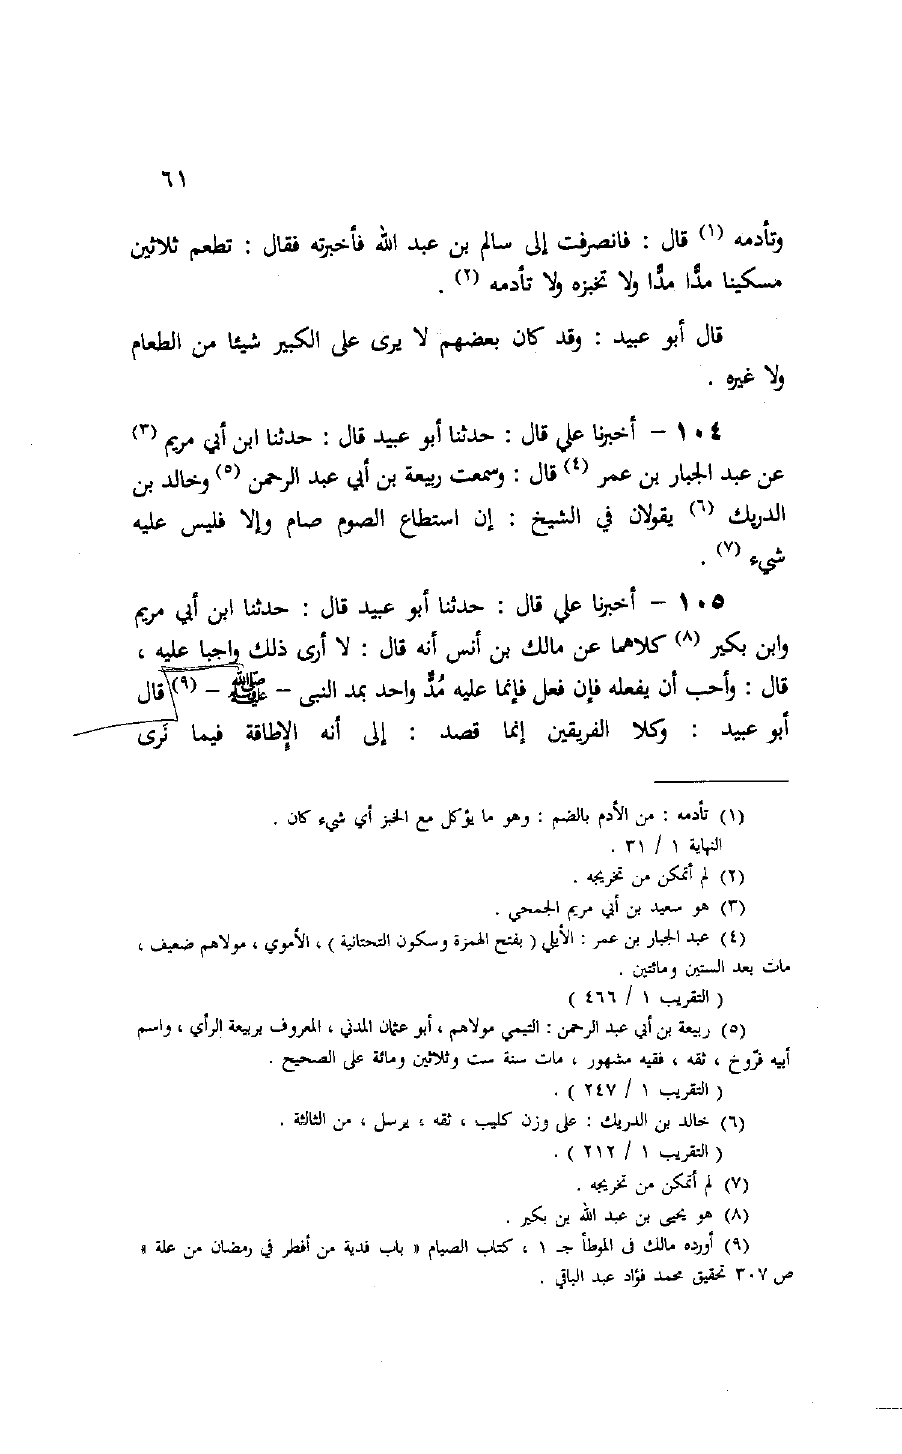 ٦١
وتأدمه (١) قال : فانصرفت إلى سالم بن عبد الله فأخبرته فقال : تطعم ثلاثين
مسكينا مدًّا مدًّا ولا تخبزه ولا تأدمه (٢) .
قال أبو عبيد : وقد كان بعضهم لا يرى على الكبير شيئا من الطعام
ولا غيره .
١٠٤ – أخبرنا علي قال : حدثنا أبو عبيد قال : حدثنا ابن أبي مريم (٣)
عن عبد الجبار بن عمر (٤) قال : وسمعت ربيعة بن أبي عبد الرحمن (٥) وخالد بن
الدريك (٦) يقولان في الشيخ : إن استطاع الصوم صام وإلا فليس عليه
شيء (٧) .
١٠٥ – أخبرنا علي قال : حدثنا أبو عبيد قال : حدثنا ابن أبي مريم
وابن بكير (٨) كلاهما عن مالك بن أنس أنه قال : لا أرى ذلك واجبا عليه ،
قال : وأحب أن يفعله فإن فعل فإنما عليه مُدٌّ واحد بمد النبى – ﷺ – (٩) قال
أبو عبيد : وكلا الفريقين إنما قصد : إلى أنه الإطاقة فيما نَرى
(١) تأدمه : من الأدم بالضم : وهو ما يؤكل مع الخبز أي شيء كان .
النهاية ١ / ٣١ .
(٢) لم أتمكن من تخريجه .
(٣) هو سعيد بن أبي مريم الجمحي .
(٤) عبد الجبار بن عمر : الأيلي ( بفتح الهمزة وسكون التحتانية ) ، الأموي ، مولاهم ضعيف ،
مات بعد الستين ومائتين .
( التقريب ١ / ٤٦٦ )
(٥) ربيعة بن أبي عبد الرحمن : التيمي مولاهم ، أبو عثمان المدني ، المعروف بربيعة الرأي ، واسم
أبيه فرّوخ ، ثقه ، فقيه مشهور ، مات سنة ست وثلاثين ومائة على الصحيح .
( التقريب ١ / ٢٤٧ ) .
(٦) خالد بن الدريك : على وزن كليب ، ثقه ، يرسل ، من الثالثة .
( التقريب ١ / ٢١٢ ) .
(٧) لم أتمكن من تخريجه .
(٨) هو يحيى بن عبد الله بن بكير .
(٩) أورده مالك فى الموطأ جـ ١ ، كتاب الصيام « باب فدية من أفطر في رمضان من علة »
ص ٣٠٧ تحقيق محمد فؤاد عبد الباقي .